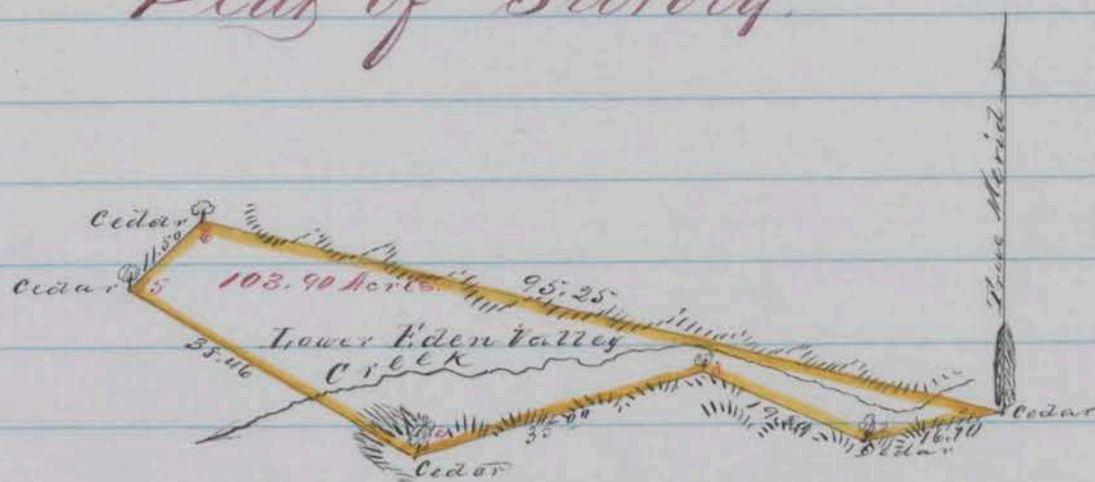 Plat of Survey.
True Merid
Cedar
11.50
6
Cedar
5
103.90 Acres.
95.25
Lower Eden Valley
Creek
38.46
3
4
Cedar
2
Cedar
16.70
Cedar